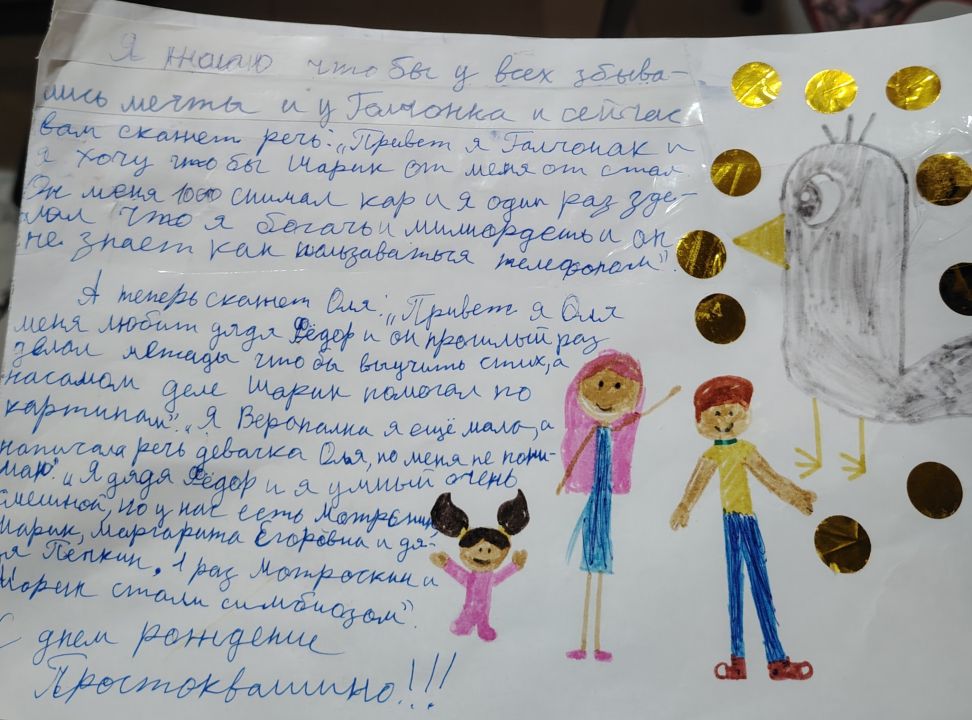 Я жилаю что бы у всех збыва-
лись мечты и у Галчонка и сейчас
вам скажет речь: „Привет я Галчонак и
я хочу что бы Шарик от меня от стал
Он меня 1000 снимал кар и я один раз зде-
лал что я богач и милиордеть и он
не знает как пользаваться телефоном".
А теперь скажет Оля: „Привет я Оля
меня любит дядя Фёдор и он прошлый раз
делал метады что бы выучить стих, а
на самом деле Шарик помогал по
картинам". „Я Веропална я ещё мала, а
написала речь девачка Оля, но меня не пони-
маю". „Я дядя Фёдор и я умный очень
смешной, но у нас есть Матрёскин,
Шарик, Маргарита Егоровна и дя-
дя Печкин. 1 раз Матроскин и
Шарик стали симбиозом".
С днем рождение
Простоквашино!!!